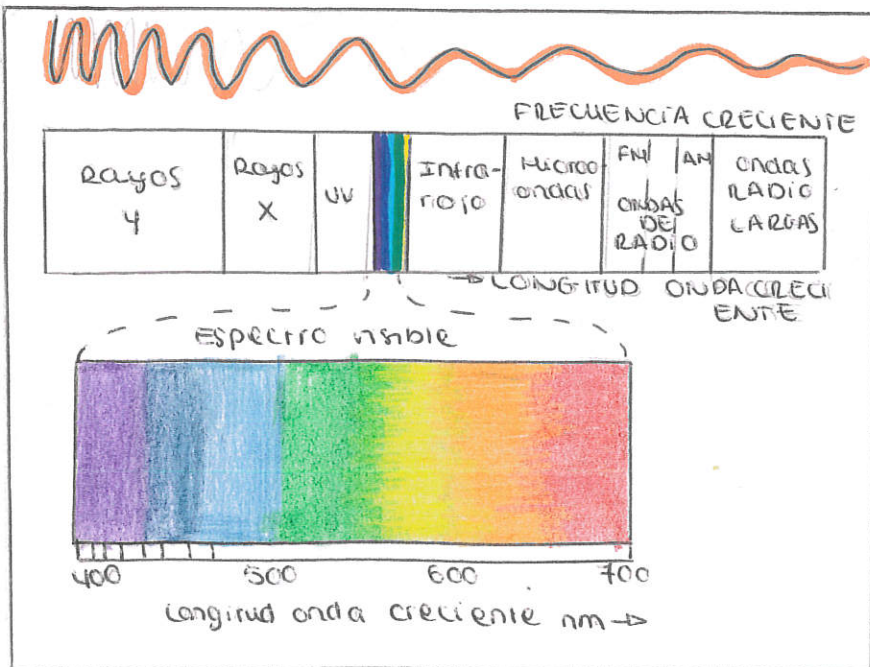 FRECUENCIA CRECIENTE
Rayos
γ
Rayos
X
UV
Infra-
rojo
Micro
ondas
FM AM
ONDAS
DE
RADIO
ondas
RADIO
LARGAS
→ LONGITUD ONDA CRECI
ENTE
Espectro visible
400 500 600 700
Longitud onda creciente nm →